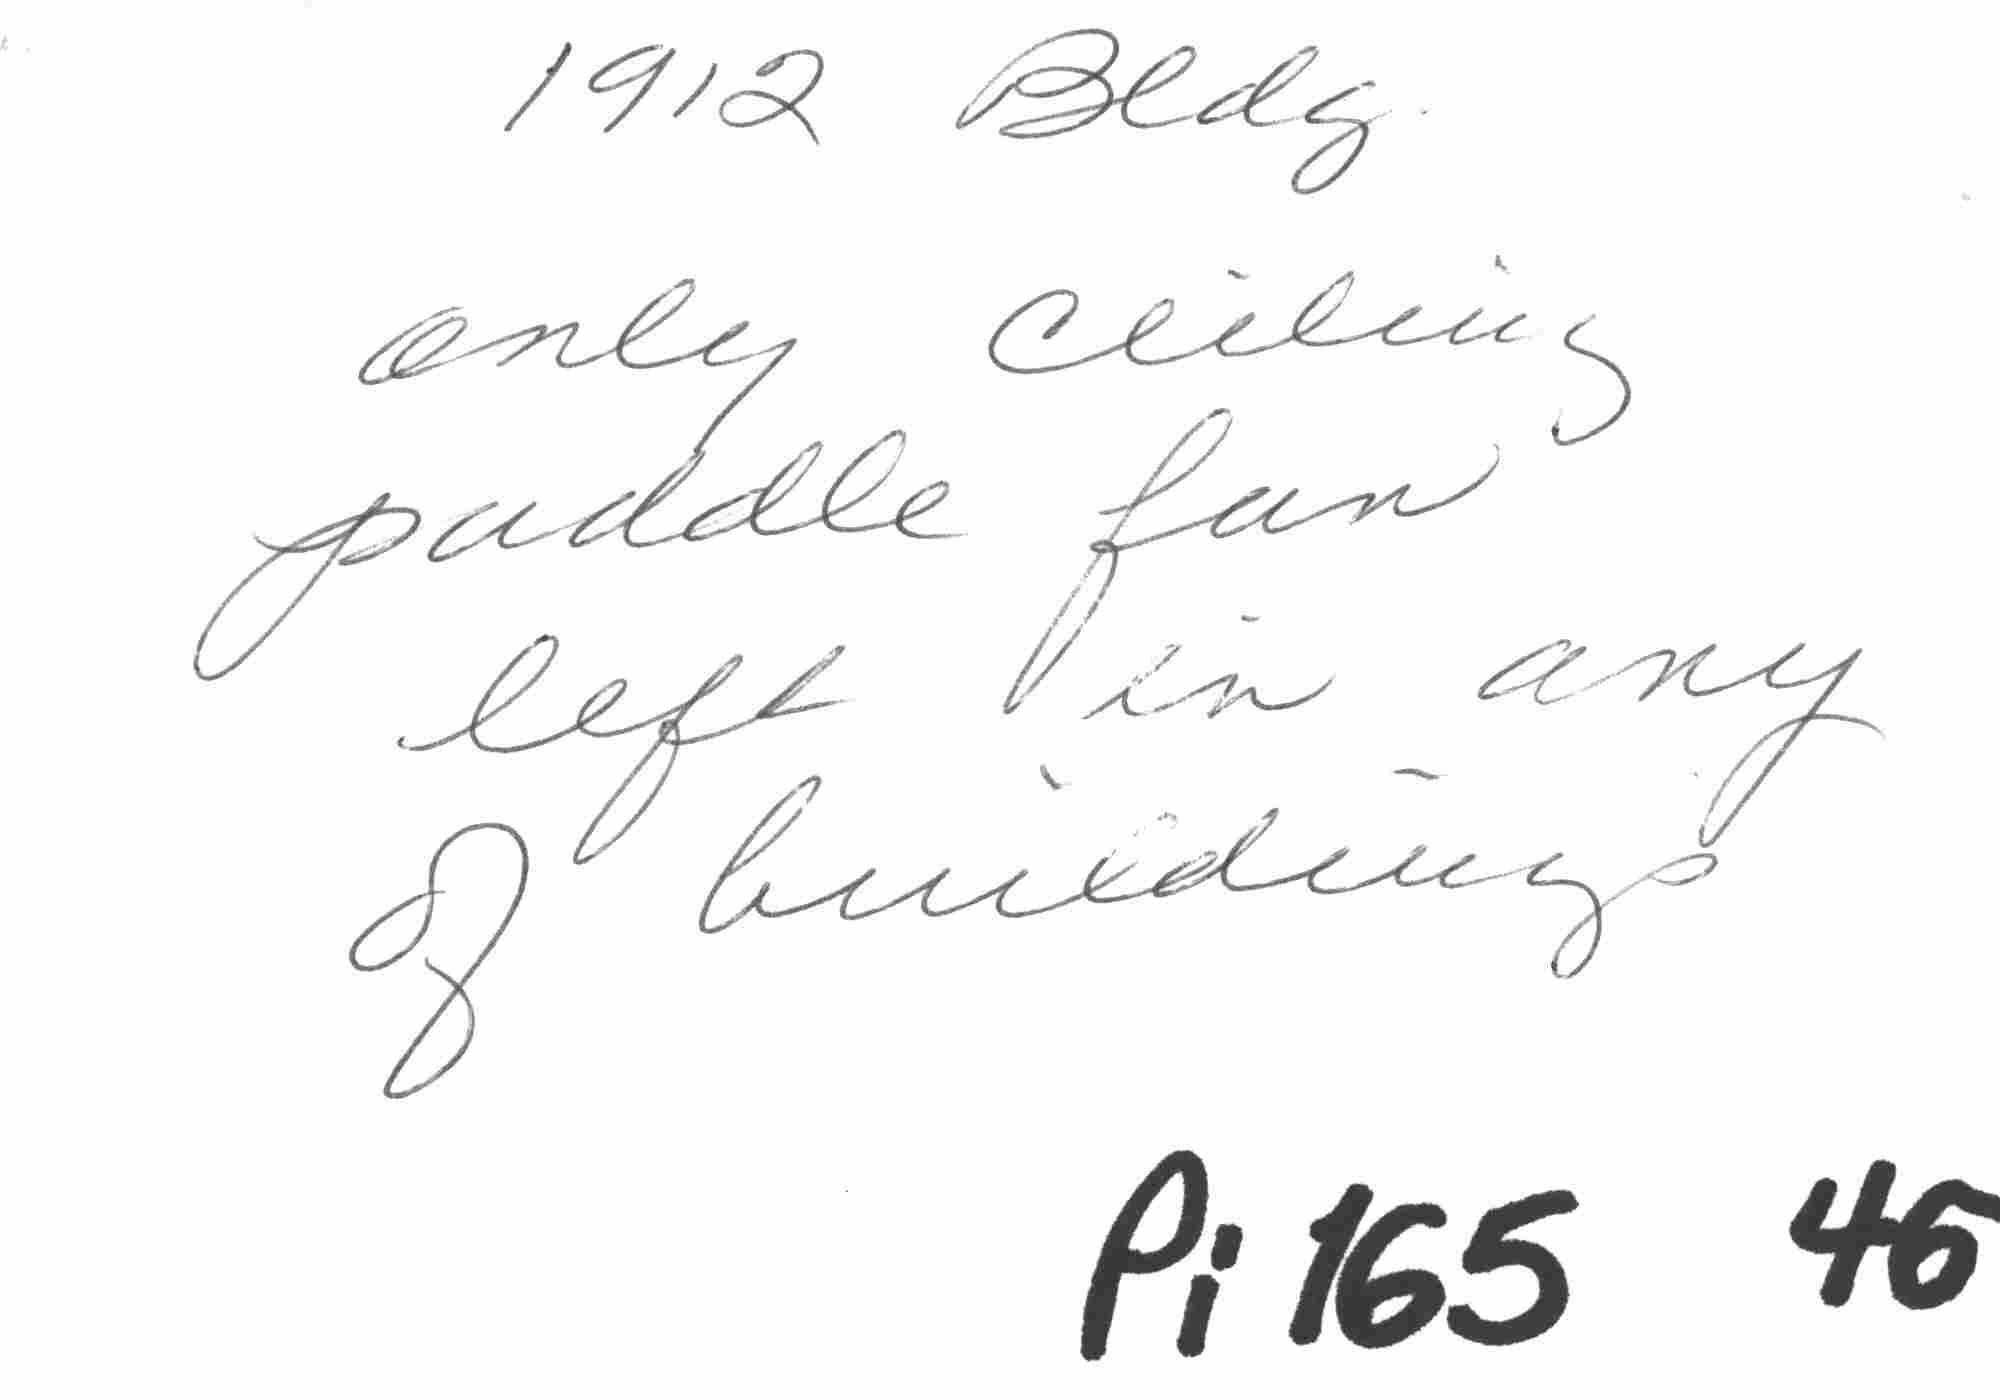 1912 Bldg.
only ceiling
paddle fan
left in any
of buildings
Pi 165 46